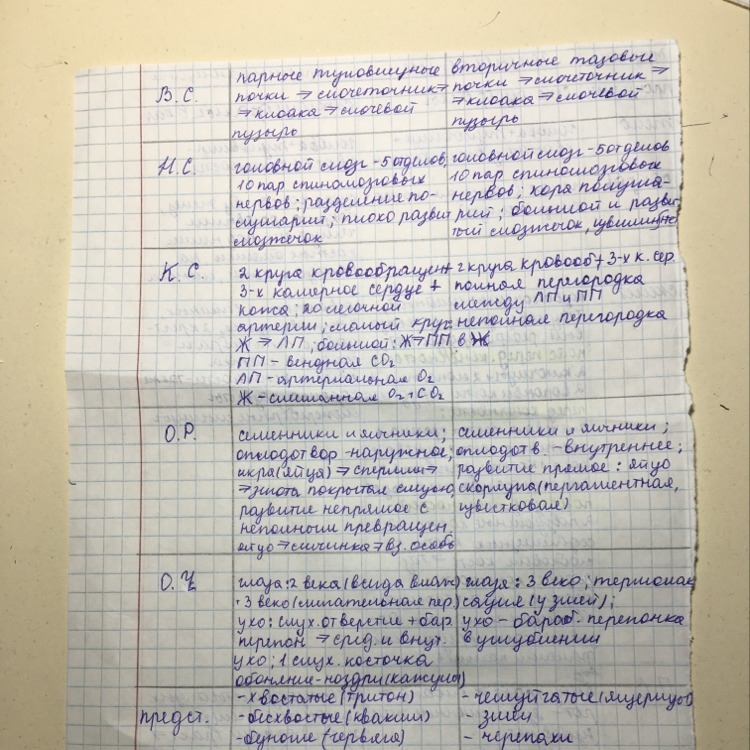 В.С.
парные туловищные
почки → мочеточник →
→ клоака → мочевой
пузырь
вторичные тазовые
почки → мочеточник →
→ клоака → мочевой
пузырь
Н.С.
головной мозг - 5 отделов,
10 пар спиномозговых
нервов; разделение по-
лушарий; плохо развит
мозжечок
головной мозг - 5 отделов
10 пар спиномозговых
нервов; кора полуша-
рий; большой и разви
тый мозжечок,
К.С.
2 круга кровообращен +
3-х камерное сердце +
кожа;
артерии; малый круг:
Ж → ЛП; большой: Ж → ПП
ПП - венозная CO₂
ЛП - артериальная O₂
Ж - смешанная O₂ + CO₂
2 круга кровооб + 3-х к. сер.
полная перегородка
между ЛП и ПП
неполная перегородка
в Ж
О.Р.
семенники и яичники;
оплодотвор - наружное;
икра (яйца) → спермии →
→ зигота покрытая слизью,
развитие непрямое с
неполным превращен.
яйцо → личинка → вз. особь
семенники и яичники;
оплодотв. - внутреннее;
развитие прямое: яйцо
скорлупа (пергаментная,
известковая)
О.Ч.
глаза: 2 века (всегда влаж)
+ 3 веко (мигательная пер.)
ухо: слух. отверстие + бар.
перепон → сред. и внут.
ухо; 1 слух. косточка
обоняние - ноздри (капсулы)
глаза: 3 веко; термолок
сация (у змей);
ухо - бараб. перепонка
в углублении
предст.
- хвостатые (тритон)
- бесхвостые (квакши)
- безногие (червяга)
- чешуйчатые (ящерицы)
- змеи
- черепахи